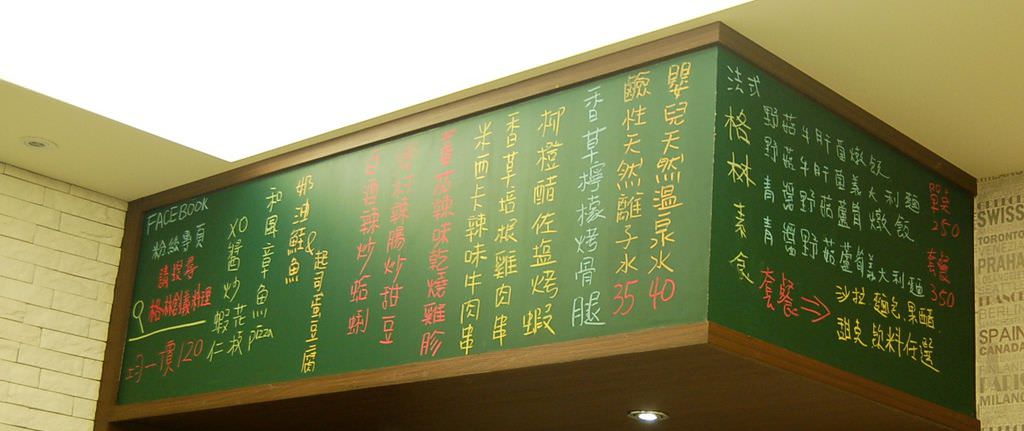 FACEBOOK
粉絲專頁
請搜尋
格林創義料理
均一價120
XO醬炒蝦仁
和風章魚pizza
奶油鮭魚&起司蛋豆腐
白酒辣炒蛤蜊
辣腸炒甜豆
辣味乾燒雞胗
米西卡辣味牛肉串
香草培根雞肉串
柳橙醋佐塩烤蝦
香草檸檬烤骨腿
鹼性天然離子水35
嬰兒天然溫泉水40
法式
格林素食
野菇牛肝菌燉飯
野菇牛肝菌義大利麵
青醬野菇蘆筍燉飯
青醬野菇蘆筍義大利麵
單点
250
套餐
350
套餐⇒
沙拉 麵包 果醋
甜点 飲料任選
SWISS
TORONTO
PRAHA
FRANCE
BERLIN
SPAIN
CANADA
PARIS
MILANO